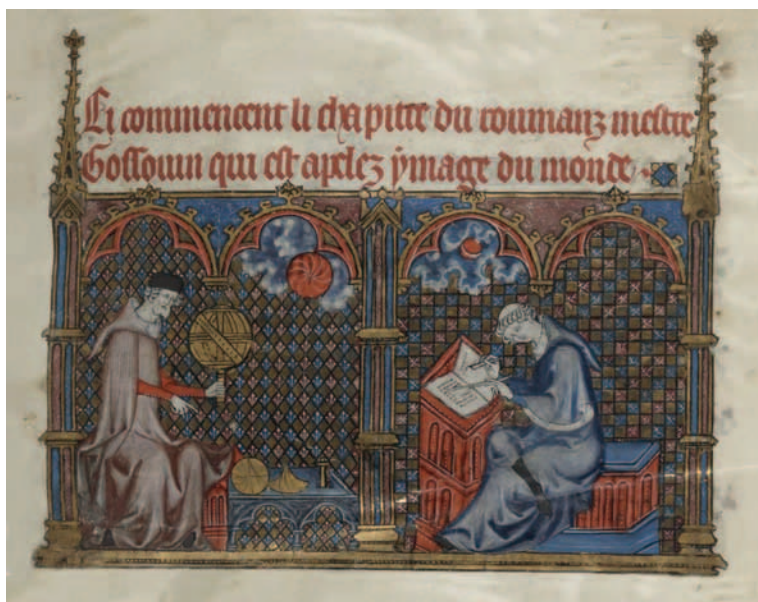 Ci commencent li chapitre du roumanz mestre
Gossouin qui est apelez ymage du monde .